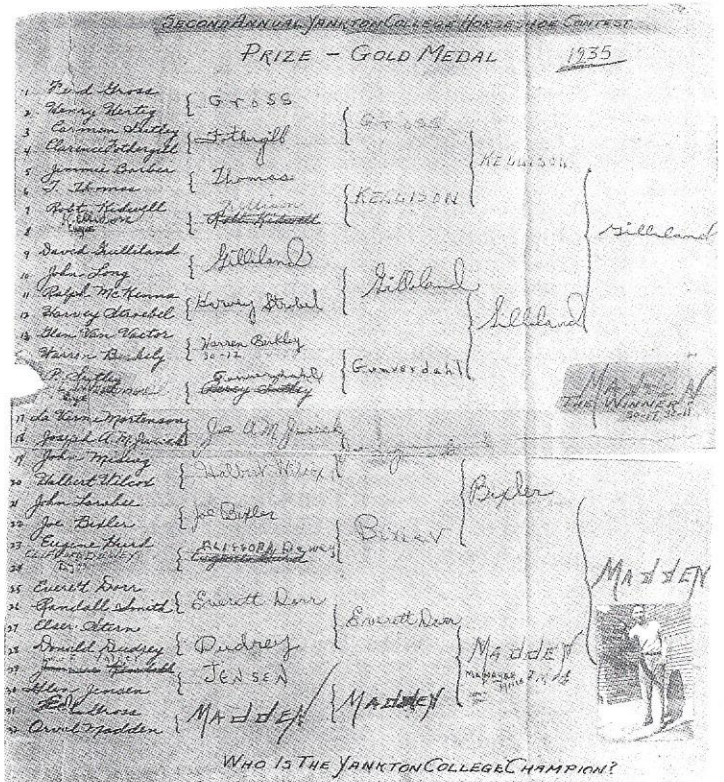 SECOND ANNUAL YANKTON COLLEGE HORSE-SHOE CONTEST
PRIZE - GOLD MEDAL 1935
1 Ferd Gross
2 Henry Hertig
3 Carmon Sutley
4 Clarence Fothergill
5 Jimmie Barber
6 T. Thomas
7 Robt Kidwell
8
9 David Gilliland
10 John Long
11 Ralph McKenna
12 Harvey Stroebel
13 Glen Van Vactor
Warren Berkely
P. Sutley
17 La Verne Mortenson
18 Joseph A. M.
19 John
20 Halbert Wilcox
21 John
22 Joe Bixler
23 Eugene Hurd
CLIFFORD DEWEY
24
25 Everett Dorr
26 Randall Smith
27 Elser Stern
28 Donald Dudrey
29
30 Jensen
31
32 Orvil Madden
GROSS
Fothergill
Thomas
Robt Kidwell
Gilliland
Harvey Strobel
Warren Berkley
30-12
Joe A M
Halbert Wilcox
Joe Bixler
CLIFFORD DEWEY
Everett Dorr
Dudrey
JENSEN
MADDEN
GROSS
KELLISON
Gilliland
Gunverdahl
BIXLER
Everett Dorr
MADDEN
KELLISON
Gilliland
Bixler
MADDEN
Gilliland
MADDEN
MADDEN
THE WINNER
WHO IS THE YANKTON COLLEGE CHAMPION?